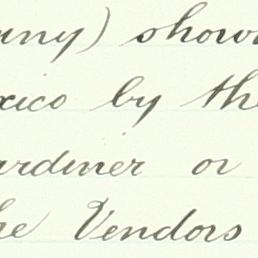 any) shown
xico by the
ardiner or
he Vendors